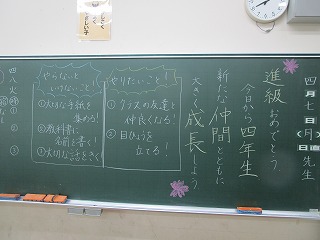 四月七日(月)
日直 先生
進級おめでとう
今日から四年生
新たな仲間とともに
大きく成長しよう
やりたいこと!
①クラスの友達と
仲良くなる!
②目ひょうを
立てる!
やらないと
いけないこと!
①大切な手紙を
集める!
②教科書に
名前を書く!
③大切な話をきく!
四/八 火
①
②
③